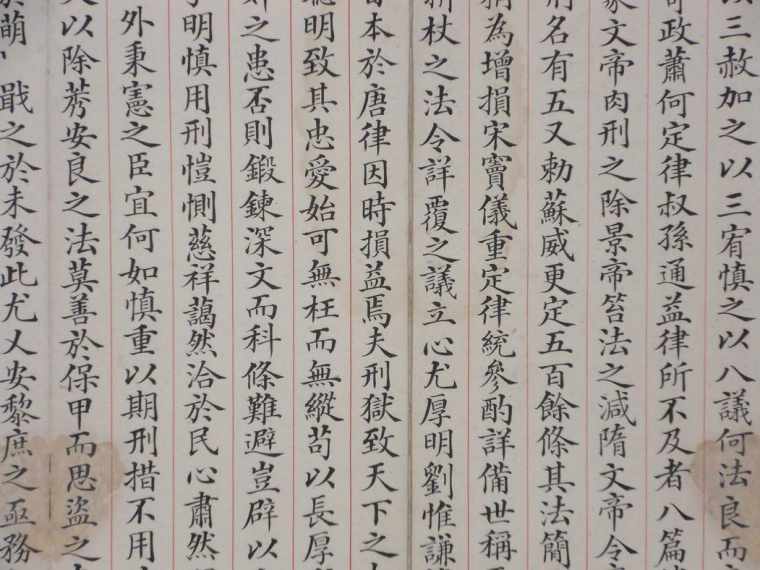 三赦加之以三宥慎之以八議何法良而
政蕭何定律叔孫通益律所不及者八篇
文帝肉刑之除景帝笞法之減隋文帝令
名有五又勅蘇威更定五百餘條其法簡
為增損宋竇儀重定律統參酌詳備世稱
杖之法令詳覆之議立心尤厚明劉惟謙
本於唐律因時損益焉夫刑獄致天下之
聰明致其忠愛始可無枉而無縱苟以長厚
之患否則鍛鍊深文而科條難避豈辟以
明慎用刑愷惻慈祥藹然洽於民心肅然
外秉憲之臣宜何如慎重以期刑措不用
以除莠安良之法莫善於保甲而思盜之
萌戢之於未發此尤乂安黎庶之亟務